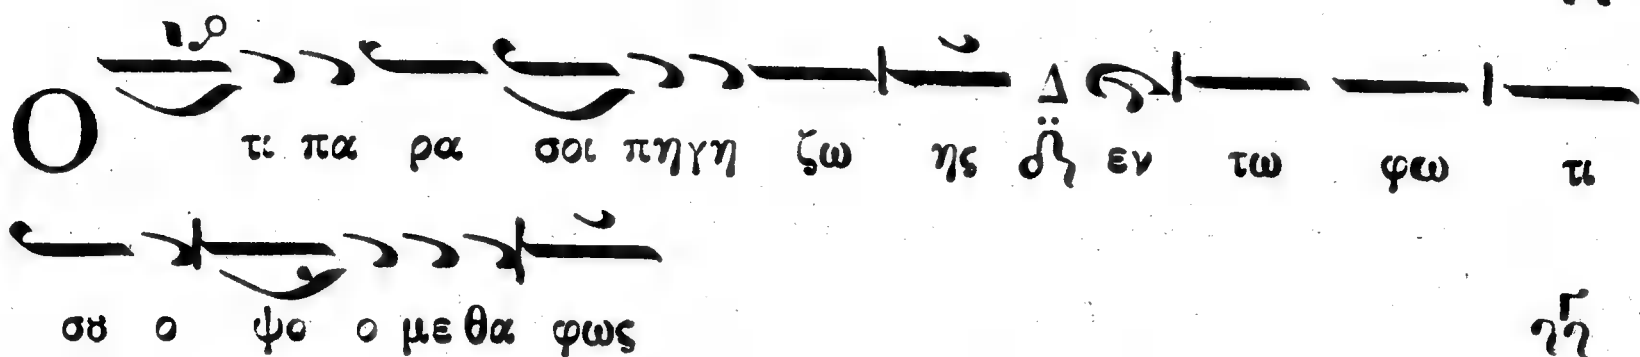 Ο τι πα ρα σοι πηγη ζω ης Δ εν τω φω τι
σȣ ο ψο ο με θα φως